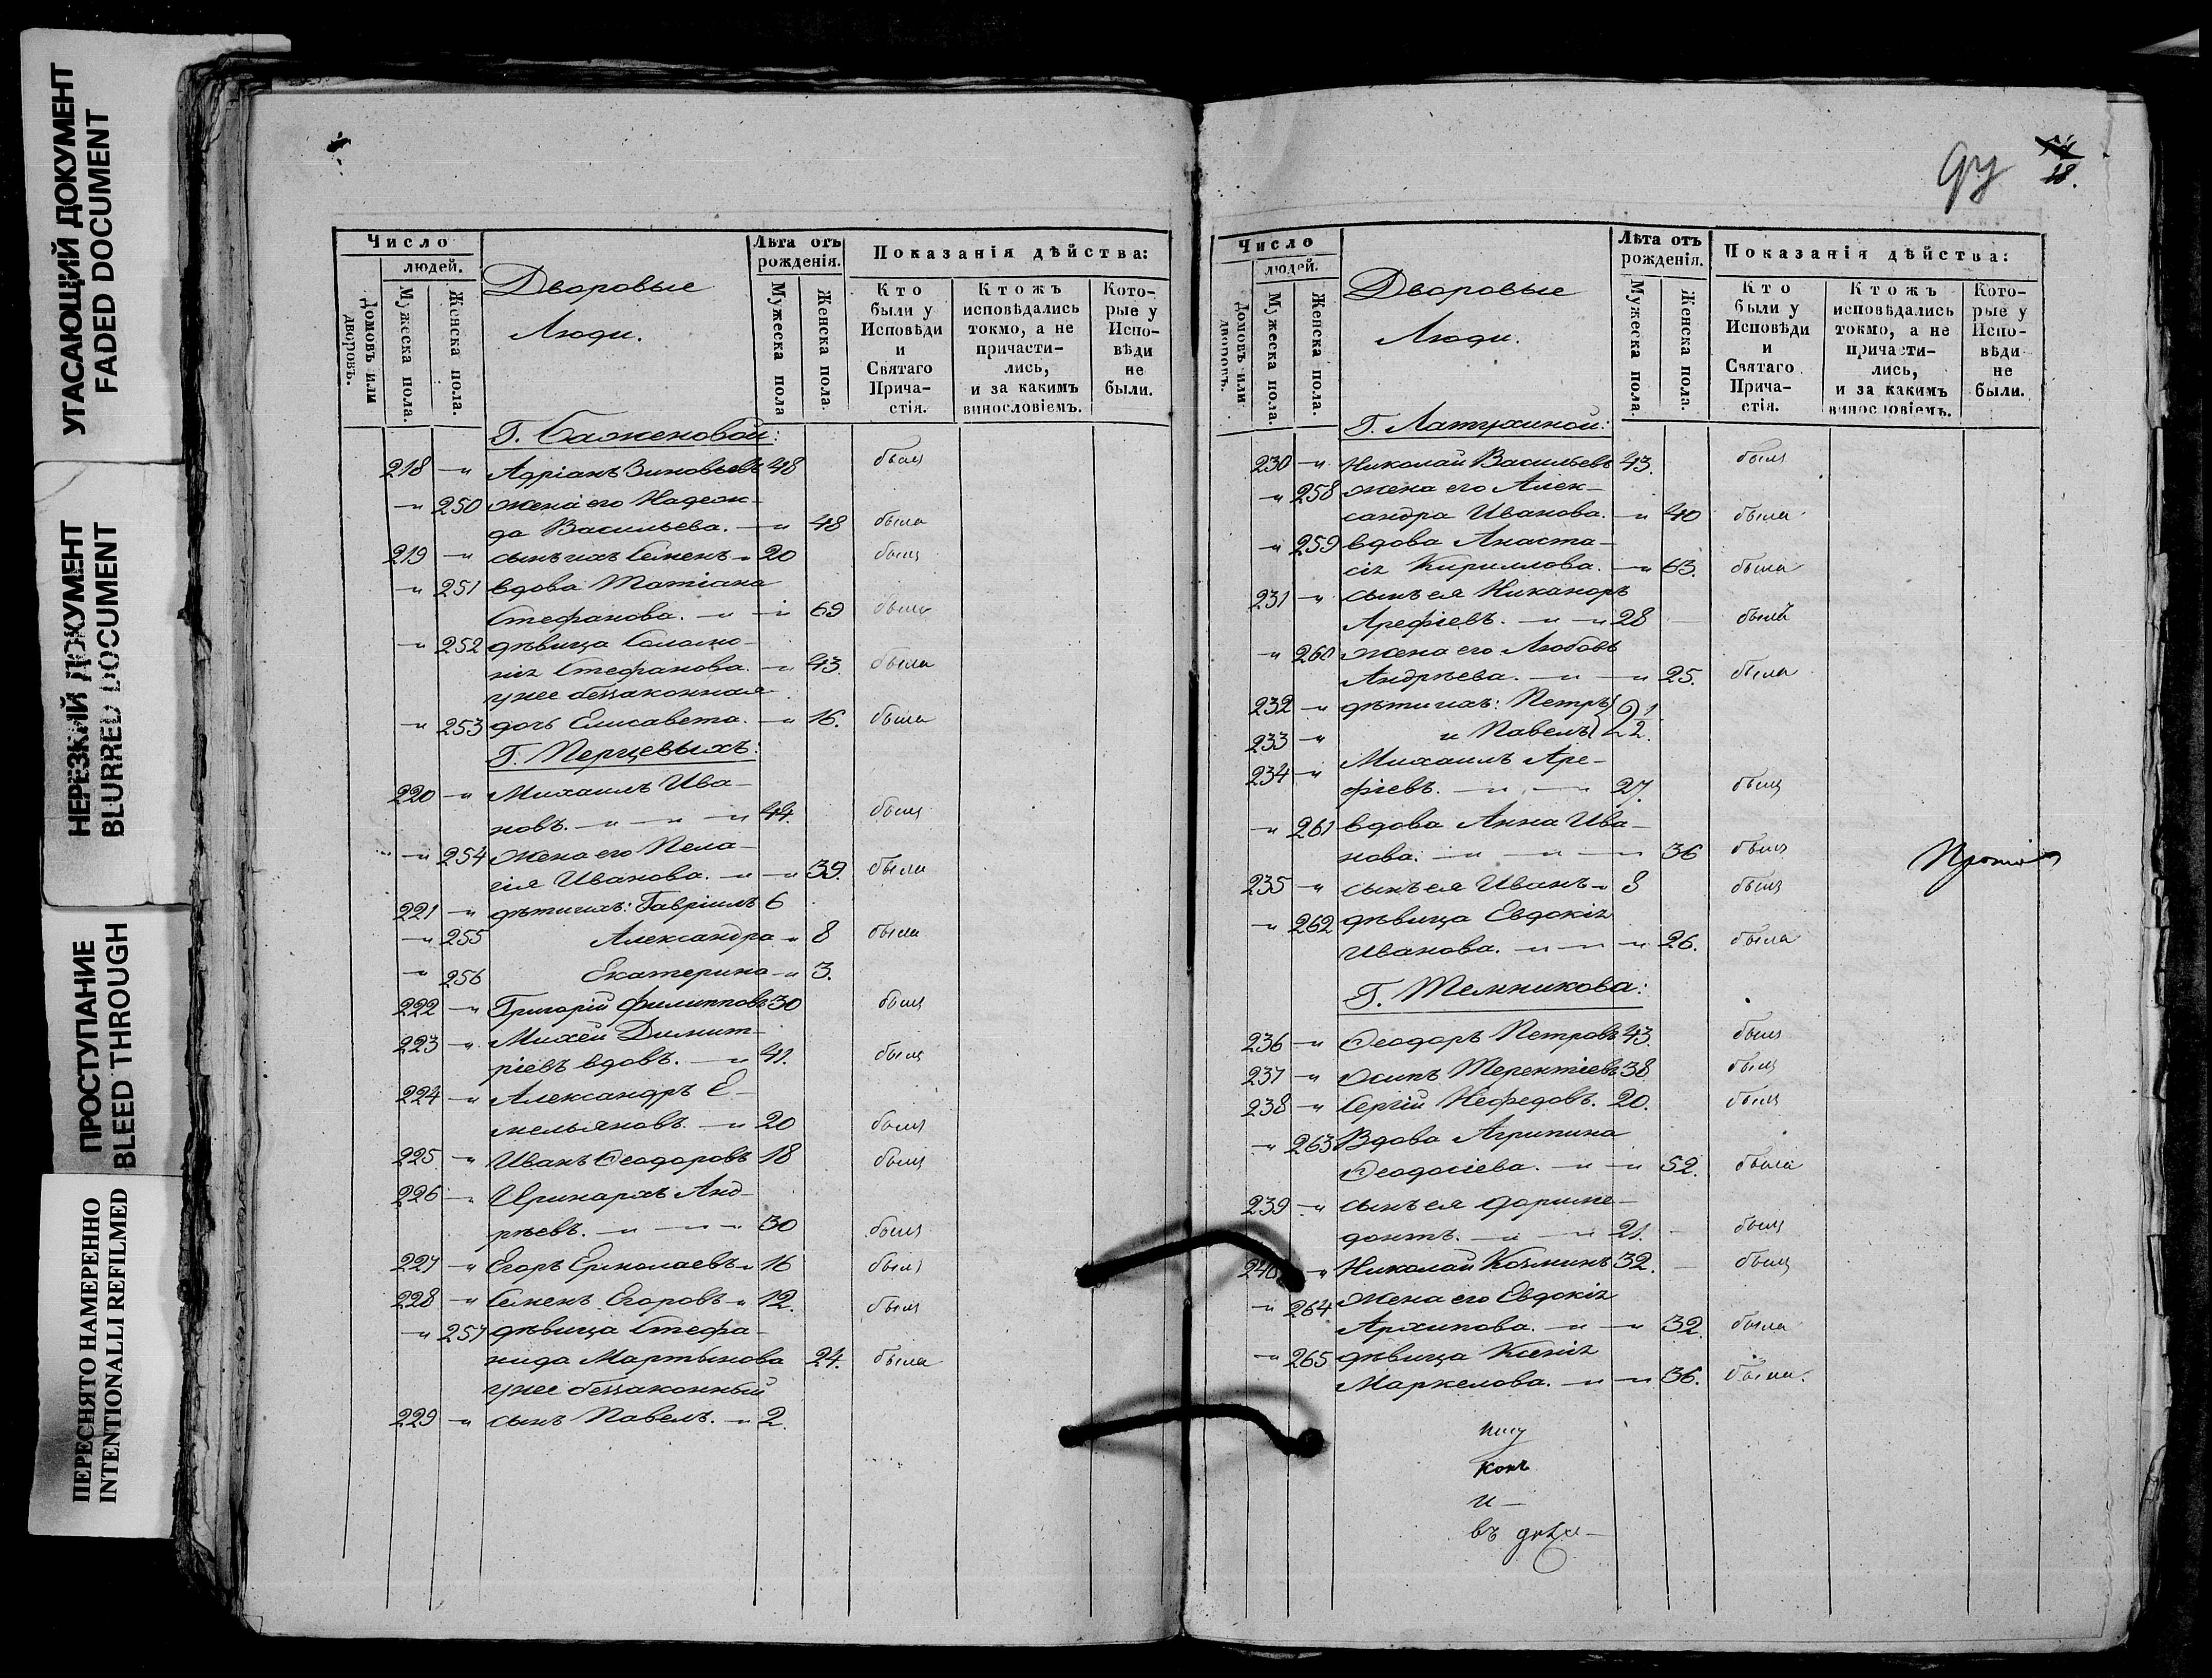 УГАСАЮЩИЙ ДОКУМЕНТ
FADED DOCUMENT
НЕРЕЗКИЙ ДОКУМЕНТ
BLURRED DOCUMENT
ПРОСТУПАНИЕ
BLEED THROUGH
ПЕРЕСНЯТО НАМЕРЕННО
INTENTIONALLI REFILMED
Число
людей.
Домовъ или дворовъ.
Мужеска пола.
Женска пола.
Дворовые
Люди.
Лѣта отъ рожденія.
Мужеска пола
Женска пола.
Показанія дѣйства:
Кто были у Исповѣди и Святаго Прича-стія.
Ктожъ исповѣдались токмо, а не причасти-лись, и за какимъ винословіемъ.
Кото-рые у Испо-вѣди не были.
Г. Баженовой:
218 —„ Адріанъ Зиновьевъ 48 былъ
—„ 250 жена его Надеж-
да Васильева. —„ 48 была
219 —„ сынъ ихъ Семенъ —„ 20 былъ
—„ 251 вдова Татіана
Стефанова. —„ —„ 69 была
—„ 252 дѣвица Соломо-
нія Стефанова. —„ 43. была
у нее беззаконная
—„ 253 дочь Елисавета. —„ 16. была
Г. Перцевыхъ:
220 —„ Михаилъ Ива-
новъ. —„ —„ —„ 44. былъ
—„ 254 жена его Пела-
гія Иванова. —„ —„ 39. была
221 —„ дѣти ихъ: Гавріилъ 6
—„ 255 Александра —„ 8 была
—„ 256 Екатерина —„ 3.
222 —„ Григорій Филипповъ 30 былъ
223 —„ Михей Димит-
ріевъ вдовъ. —„ 41. былъ
224 —„ Александръ Е-
мельяновъ. —„ 20 былъ
225 —„ Иванъ Ѳеодоровъ 18 былъ
226 —„ Иринархъ Анд-
реевъ. —„ —„ —„ 30 былъ
227 —„ Егоръ Ермолаевъ —„ 16 былъ
228 —„ Семенъ Егоровъ —„ 12. былъ
—„ 257 дѣвица Стефа-
нида Мартынова 24. была
у нее беззаконный
229 —„ сынъ Павелъ. —„ 2.
18.
Число
людей.
Домовъ или дворовъ.
Мужеска пола.
Женска пола.
Дворовые
Люди.
Лѣта отъ рожденія.
Мужеска пола.
Женска пола.
Показанія дѣйства:
Кто были у Исповѣди и Святаго Прича-стія.
Ктожъ исповѣдались токмо, а не причасти-лись, и за какимъ винословіемъ.
Кото-рые у Испо-вѣди не были.
Г. Латухиной:
230 —„ Николай Васильевъ 43. былъ
—„ 258 жена его Алек-
сандра Иванова. —„ 40 была
—„ 259 вдова Анаста-
сія Кириллова. —„ 63. была
231 —„ сынъ ея Никаноръ
Арефіевъ. —„ —„ 28 былъ
—„ 260 жена его Любовь
Андреева. —„ —„ 25. была
232 —„ дѣти ихъ: Петръ
233 —„ и Павелъ 2.
234 —„ Михаилъ Аре-
фіевъ. —„ —„ 27. былъ
—„ 261 вдова Анна Ива-
нова. —„ —„ —„ 36 была
235 —„ сынъ ея Иванъ —„ 8 былъ
—„ 262 дѣвица Евдокія
Иванова. —„ —„ —„ 26. была
Г. Темникова:
236 —„ Ѳеодоръ Петровъ 43. былъ
237 —„ Осипъ Терентіевъ 38. былъ
238 —„ Сергій Нефедовъ. 20. былъ
—„ 263 Вдова Агрипина
Ѳеодосіева. —„ —„ 52. была
239 —„ сынъ ея Дориме-
донтъ. —„ —„ 21. былъ
240 —„ Николай Козминъ 32. былъ
—„ 264 жена его Евдокія
Архипова. —„ —„ 32. была
—„ 265 дѣвица Ксенія
Маркелова. —„ —„ 36. была.
Прото
конъ
и —
въ